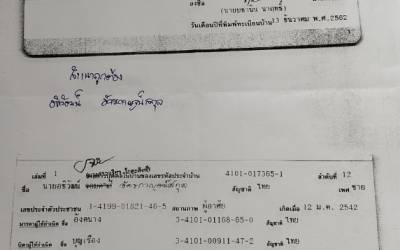 ลงชื่อ
(นายชยานันน์ นาฤทธิ์)
วันเดือนปีที่พิมพ์ทะเบียนบ้าน 13 ธันวาคม พ.ศ.2562
สำเนาถูกต้อง
เล่มที่ 1 รายการบุคคลในบ้านของเลขรหัสประจำบ้าน 4101-017365-1 ลำดับที่ 12
ชื่อ นาย สัญชาติ ไทย เพศ ชาย
เลขประจำตัวประชาชน 1-4199-01821-46-5 สถานภาพ ผู้อาศัย เกิดเมื่อ 12 ม.ค. 2542
มารดาผู้ให้กำเนิด ชื่อ อังคนาง 3-4101-01168-65-0 สัญชาติ ไทย
บิดาผู้ให้กำเนิด ชื่อ บุญเรือง 3-4101-00911-47-2 สัญชาติ ไทย